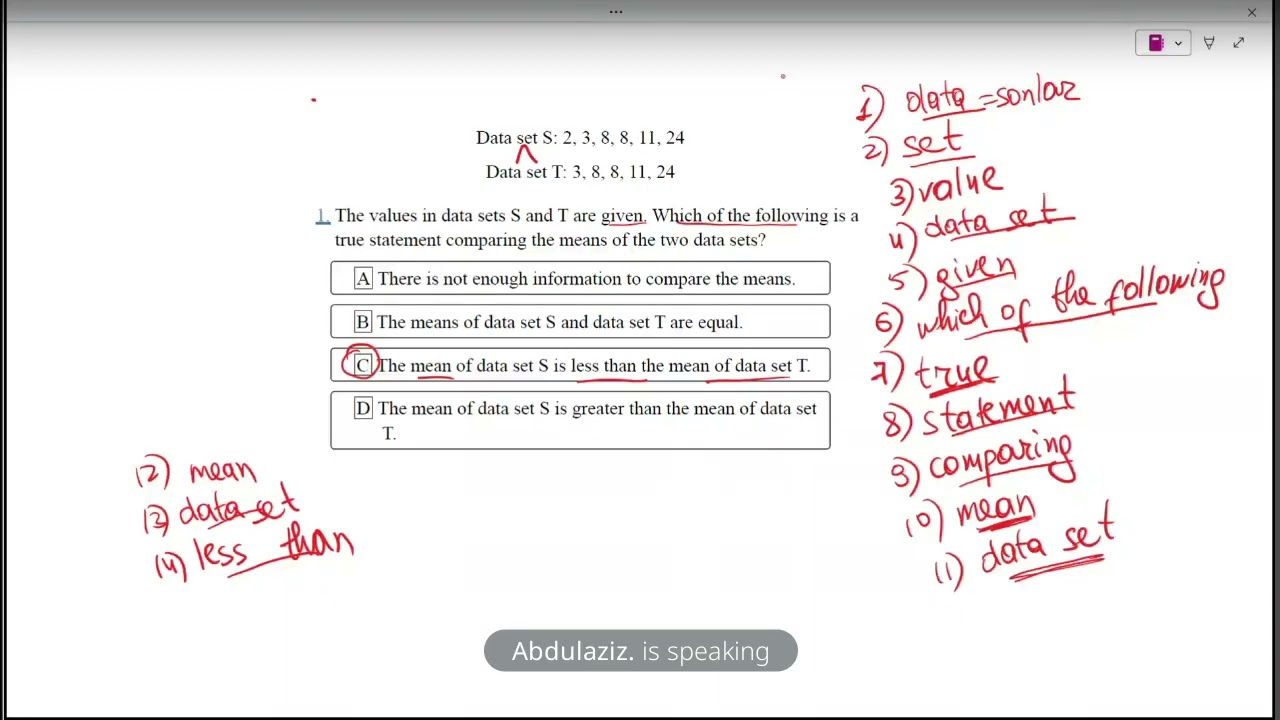 Data set S: 2, 3, 8, 8, 11, 24
Data set T: 3, 8, 8, 11, 24
1. The values in data sets S and T are given. Which of the following is a
true statement comparing the means of the two data sets?
A There is not enough information to compare the means.
B The means of data set S and data set T are equal.
C The mean of data set S is less than the mean of data set T.
D The mean of data set S is greater than the mean of data set
T.
1) data = sonlar
2) set
3) value
4) data set
5) given
6) which of the following
7) true
8) statement
9) comparing
10) mean
11) data set
12) mean
13) data set
14) less than
Abdulaziz. is speaking